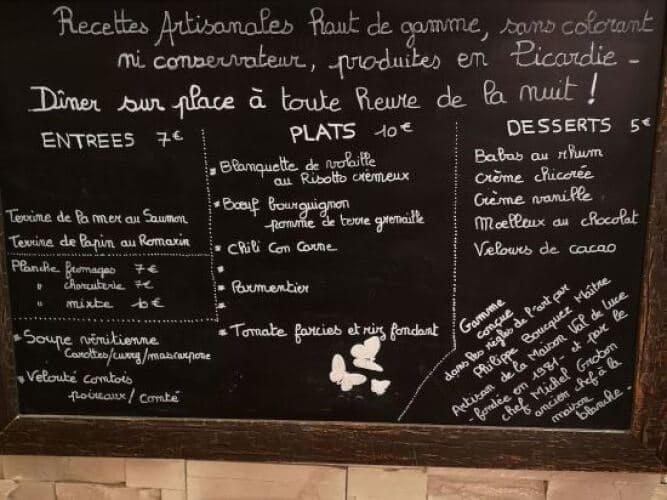 Recettes Artisanales haut de gamme, sans colorant
ni conservateur, produites en Picardie -
Dîner sur place à toute heure de la nuit !
ENTREES 7€
Terrine de la mer au Saumon
Terrine de lapin au Romarin
Planche fromages 7€
" charcuterie 7€
" mixte 10€
* Soupe vénitienne
Carottes/curry/mascarpone
* Velouté comtois
poireaux/comté
PLATS 10€
* Blanquette de volaille
au Risotto crèmeux
* Bœuf bourguignon
pomme de terre grenaille
* Chili Con Carne
*
* Parmentier
*
* Tomate farcies et riz fondant
DESSERTS 5€
Babas au rhum
Crème chicorée
Crème vanille
Moelleux au chocolat
Velours de cacao
Gamme
conçue
dans les règles de l'art par
Philippe Bourquez Maître
Artisan de la Maison Val de Luce
- fondée en 1981 - et par le
chef Michel Grobon
ancien chef à la
maison
blanche -